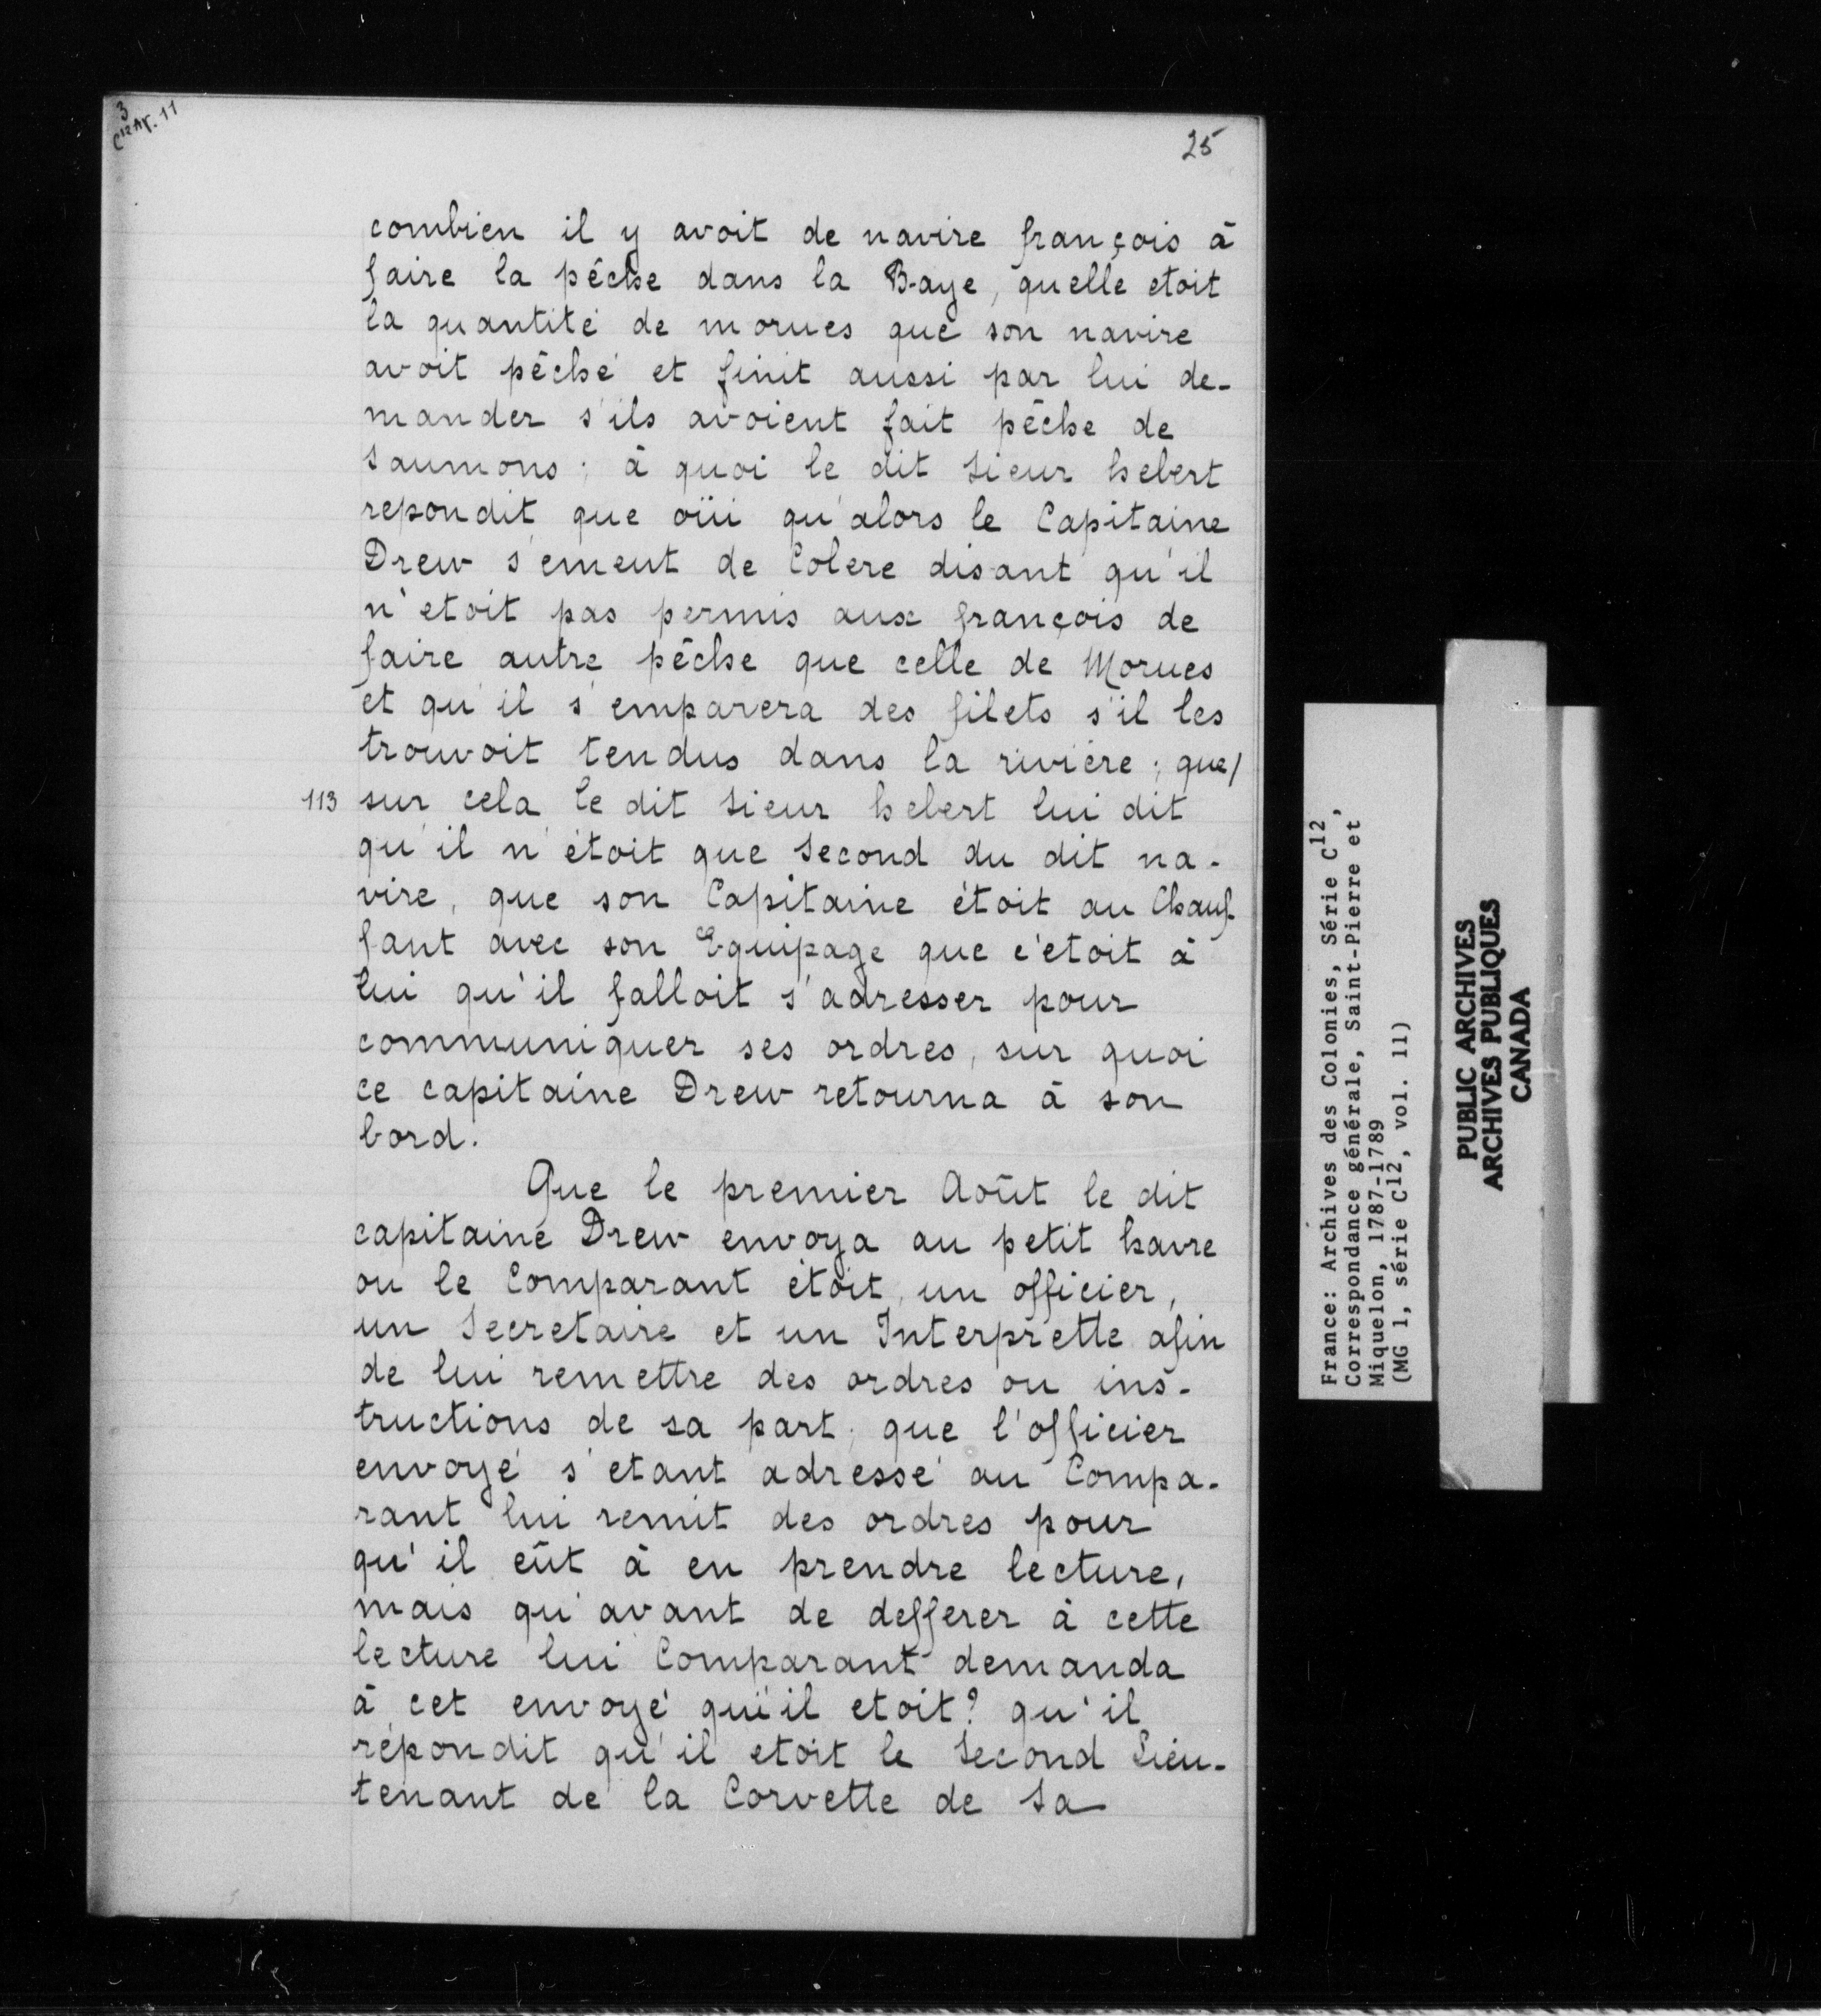 3
C12 Ar. 11
25
combien il y avoit de navire françois à
faire la pêche dans la Baye, quelle etoit
la quantité de morues que son navire
avoit pêché et finit aussi par lui de-
mander s'ils avoient fait pêche de
saumons; à quoi le dit Sieur hebert
repondit que oüi qu'alors le Capitaine
Drew s'emeut de Colere disant qu'il
n'etoit pas permis aux françois de
faire autre pêche que celle de Morues
et qu'il s'emparera des filets s'il les
trouvoit tendus dans la rivière; que/
113 sur cela le dit Sieur hebert lui dit
qu'il n'étoit que Second du dit na-
vire, que son Capitaine étoit au Chauf-
fant avec son Equipage que c'étoit à
lui qu'il falloit s'adresser pour
communiquer ses ordres, sur quoi
ce capitaine Drew retourna à son
bord.
Que le premier Août le dit
capitaine Drew envoya au petit havre
ou le Comparant étoit, un officier,
un Secretaire et un Interprette afin
de lui remettre des ordres ou ins-
tructions de sa part; que l'officier
envoyé s'etant adressé au Compa-
rant lui remit des ordres pour
qu'il eût à en prendre lecture,
mais qu'avant de defferer à cette
lecture lui Comparant demanda
à cet envoyé qui il etoit? qu'il
répondit qu'il etoit le Second Lieu-
tenant de la Corvette de Sa
France: Archives des Colonies, Série C12,
Correspondance générale, Saint-Pierre et
Miquelon, 1787-1789
(MG 1, série C12, vol. 11)
PUBLIC ARCHIVES
ARCHIVES PUBLIQUES
CANADA